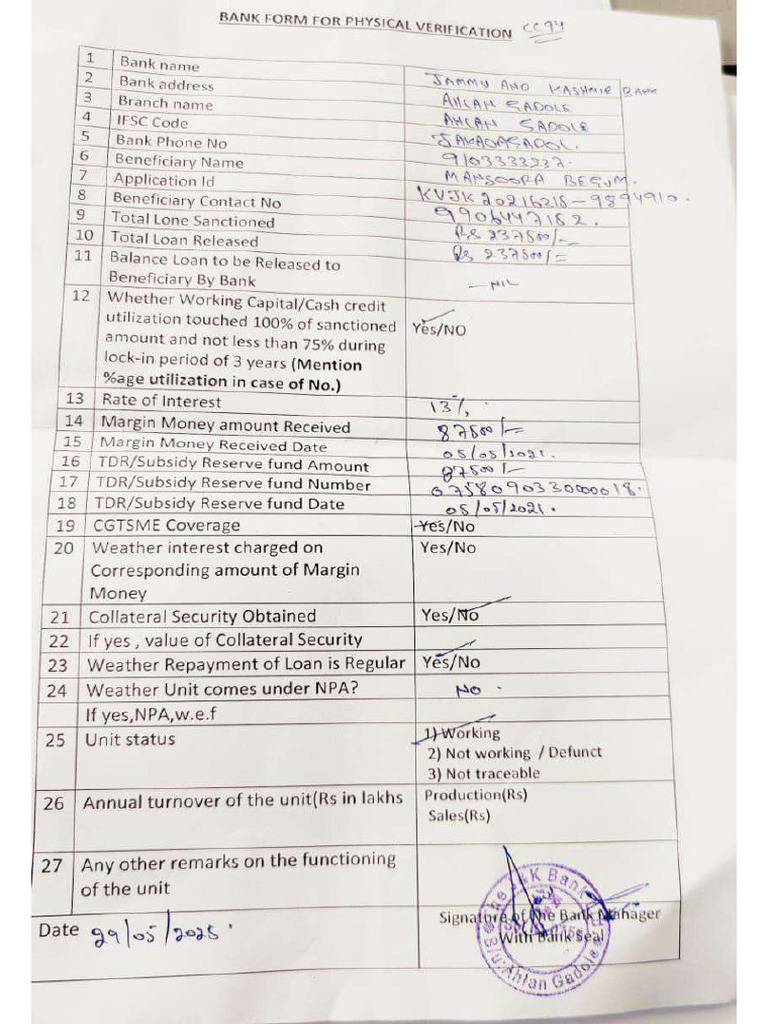 BANK FORM FOR PHYSICAL VERIFICATION CC94
1 Bank name JAMMU AND KASHMIR BANK
2 Bank address AHLAN GADOLE
3 Branch name AHLAN GADOLE
4 IFSC Code JAKA0AGADOL.
5 Bank Phone No 9103333237.
6 Beneficiary Name MANSOORA BEGUM.
7 Application Id KVJK20216218-9894910.
8 Beneficiary Contact No 9906447182.
9 Total Lone Sanctioned Rs 237500/-
10 Total Loan Released Rs 237500/=
11 Balance Loan to be Released to
Beneficiary By Bank - NIL
12 Whether Working Capital/Cash credit
utilization touched 100% of sanctioned Yes/NO
amount and not less than 75% during
lock-in period of 3 years (Mention
%age utilization in case of No.)
13 Rate of Interest 13%.
14 Margin Money amount Received 87500/-
15 Margin Money Received Date 05/05/2021.
16 TDR/Subsidy Reserve fund Amount 87500/-
17 TDR/Subsidy Reserve fund Number 0758090330000018.
18 TDR/Subsidy Reserve fund Date 05/05/2021.
19 CGTSME Coverage Yes/No
20 Weather interest charged on Yes/No
Corresponding amount of Margin
Money
21 Collateral Security Obtained Yes/No
22 If yes , value of Collateral Security
23 Weather Repayment of Loan is Regular Yes/No
24 Weather Unit comes under NPA? NO .
If yes,NPA,w.e.f
25 Unit status 1) Working
2) Not working / Defunct
3) Not traceable
26 Annual turnover of the unit(Rs in lakhs Production(Rs)
Sales(Rs)
27 Any other remarks on the functioning
of the unit
Date 29/05/2025.
Signature of the Bank Manager
With Bank Seal
The J&K Bank Ltd
B/U: Ahlan Gadole